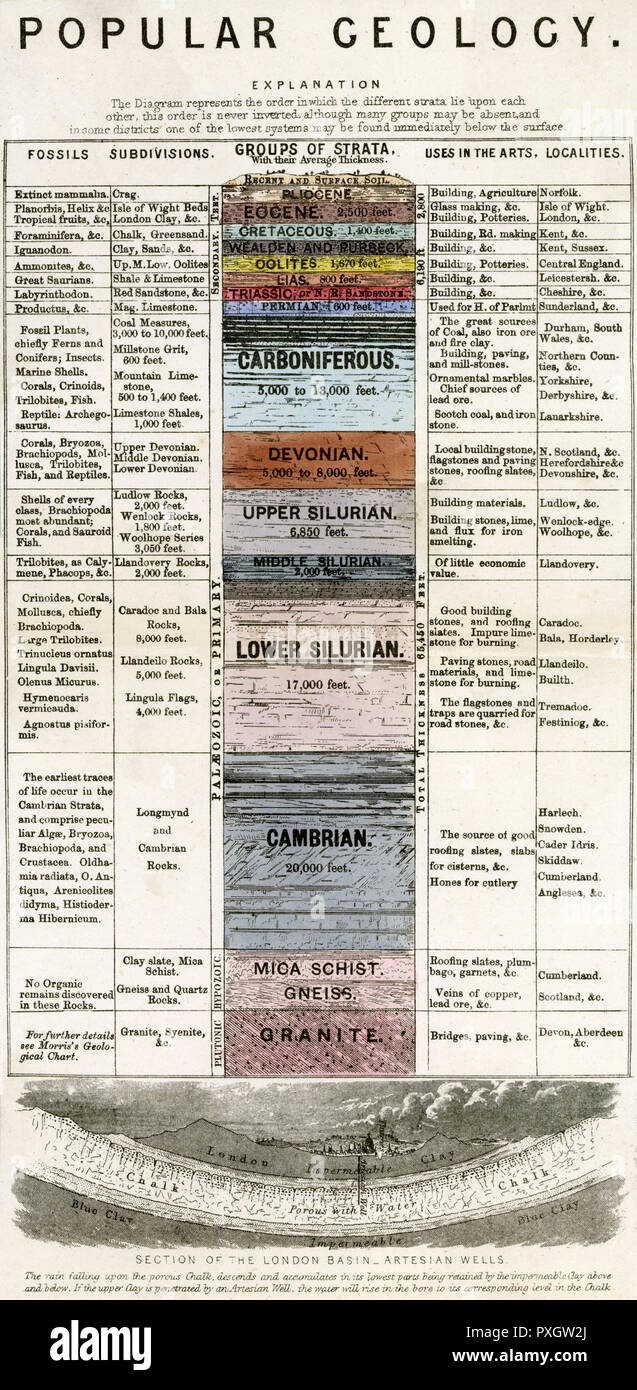 POPULAR GEOLOGY.
EXPLANATION
The Diagram represents the order in which the different strata lie upon each
other, this order is never inverted, although many groups may be absent, and
in some districts one of the lowest systems may be found immediately below the surface.
FOSSILS
SUBDIVISIONS.
GROUPS OF STRATA,
With their Average Thickness.
USES IN THE ARTS,
LOCALITIES.
RECENT AND SURFACE SOIL
Extinct mammalia.
Crag.
PLIOCENE
Building, Agriculture
Norfolk.
Planorbis, Helix &c
Tropical fruits, &c,
Isle of Wight Beds
London Clay, &c.
EOCENE. 2,500 feet.
Glass making, &c.
Building, Potteries.
Isle of Wight.
London, &c.
Foraminifera, &c.
Chalk, Greensand.
CRETACEOUS. 1,400 feet.
Building, Rd. making
Kent, &c.
Iguanodon.
Clay, Sands, &c.
WEALDEN AND PURBECK,
Building, &c.
Kent, Sussex.
Ammonites, &c,
Up. M. Low. Oolites
OOLITES. 1,670 feet.
Building, Potteries.
Central England.
Great Saurians.
Shale & Limestone
LIAS. 800 feet.
Building, &c.
Leicestersh. &c.
Labyrinthodon.
Red Sandstone, &c.
TRIASSIC or N. R. SANDSTONE.
Building, &c.
Cheshire, &c.
Productus, &c.
Mag. Limestone.
PERMIAN. 600 feet.
Used for H. of Parlmt
Sunderland, &c.
TERT.
SECONDARY.
PALÆOZOIC, OR PRIMARY.
HYPOZOIC.
PLUTONIC
2,800
6,190 ft.
TOTAL THICKNESS 65,450 FEET.
Fossil Plants,
chiefly Ferns and
Conifers; Insects.
Marine Shells.
Corals, Crinoids,
Trilobites, Fish.
Reptile: Archego-
saurus.
Coal Measures,
3,000 to 10,000 feet.
Millstone Grit,
600 feet.
Mountain Lime-
stone,
500 to 1,400 feet.
Limestone Shales,
1,000 feet.
CARBONIFEROUS.
5,000 to 13,000 feet.
The great sources
of Coal, also iron ore
and fire clay.
Building, paving,
and mill-stones.
Ornamental marbles.
Chief sources of
lead ore.
Scotch coal, and iron
stone.
Durham, South
Wales, &c.
Northern Coun-
ties, &c.
Yorkshire,
Derbyshire, &c.
Lanarkshire.
Corals, Bryozos,
Brachiopods, Mol-
lusca, Trilobites,
Fish, and Reptiles.
Upper Devonian.
Middle Devonian.
Lower Devonian.
DEVONIAN.
5,000 to 8,000 feet.
Local building stone,
flagstones and paving
stones, roofing slates,
&c.
N. Scotland, &c.
Herefordshire &c
Devonshire, &c.
Shells of every
class, Brachiopoda
most abundant;
Corals, and Sauroid
Fish.
Ludlow Rocks,
2,000 feet.
Wenlock Rocks,
1,800 feet.
Woolhope Series
3,050 feet.
UPPER SILURIAN.
6,850 feet.
Building materials.
Building stones, lime,
and flux for iron
smelting.
Ludlow, &c.
Wenlock-edge.
Woolhope, &c.
Trilobites, as Caly-
mene, Phacops, &c.
Llandovery Rocks,
2,000 feet.
MIDDLE SILURIAN.
2,000 feet.
Of little economic
value.
Llandovery.
Crinoidea, Corals,
Mollusca, chiefly
Brachiopoda.
Large Trilobites.
Trinucleus ornatus
Lingula Davisii.
Olenus Micurus.
Hymenocaris
vermicauda.
Agnostus pisifor-
mis.
Caradoc and Bala
Rocks,
8,000 feet.
Llandeilo Rocks,
5,000 feet.
Lingula Flags,
4,000 feet.
LOWER SILURIAN.
17,000 feet.
Good building
stones, and roofing
slates. Impure lime-
stone for burning.
Paving stones, road
materials, and lime-
stone for burning.
The flagstones and
traps are quarried for
road stones, &c.
Caradoc.
Bala, Horderley.
Llandeilo.
Builth.
Tremadoc.
Festiniog, &c.
The earliest traces
of life occur in the
Cambrian Strata,
and comprise pecu-
liar Algæ, Bryozoa,
Brachiopoda, and
Crustacea. Oldha-
mia radiata, O. An-
tiqua, Arenicolites
didyma, Histioder-
ma Hibernicum.
Longmynd
and
Cambrian
Rocks.
CAMBRIAN.
20,000 feet.
The source of good
roofing slates, slabs
for cisterns, &c.
Hones for cutlery
Harlech.
Snowden.
Cader Idris.
Skiddaw.
Cumberland.
Anglesea, &c.
No Organic
remains discovered
in these Rocks.
Clay slate, Mica
Schist.
Gneiss and Quartz
Rocks.
MICA SCHIST.
GNEISS.
Roofing slates, plum-
bago, garnets, &c.
Veins of copper,
lead ore, &c.
Cumberland.
Scotland, &c.
For further details
see Morris's Geolo-
gical Chart.
Granite, Syenite,
&c.
GRANITE.
Bridges, paving, &c.
Devon, Aberdeen
&c.
London Clay
Impermeable
Chalk
Chalk
Porous with Water
Blue Clay
Blue Clay
Impermeable
SECTION OF THE LONDON BASIN_ARTESIAN WELLS.
The rain falling upon the porous Chalk, descends and accumulates in its lowest parts being retained by the impermeable Clay above
and below. If the upper Clay is penetrated by an Artesian Well, the water will rise in the bore to its corresponding level in the Chalk
alamy
alamy
Image ID: PXGW2J
www.alamy.com